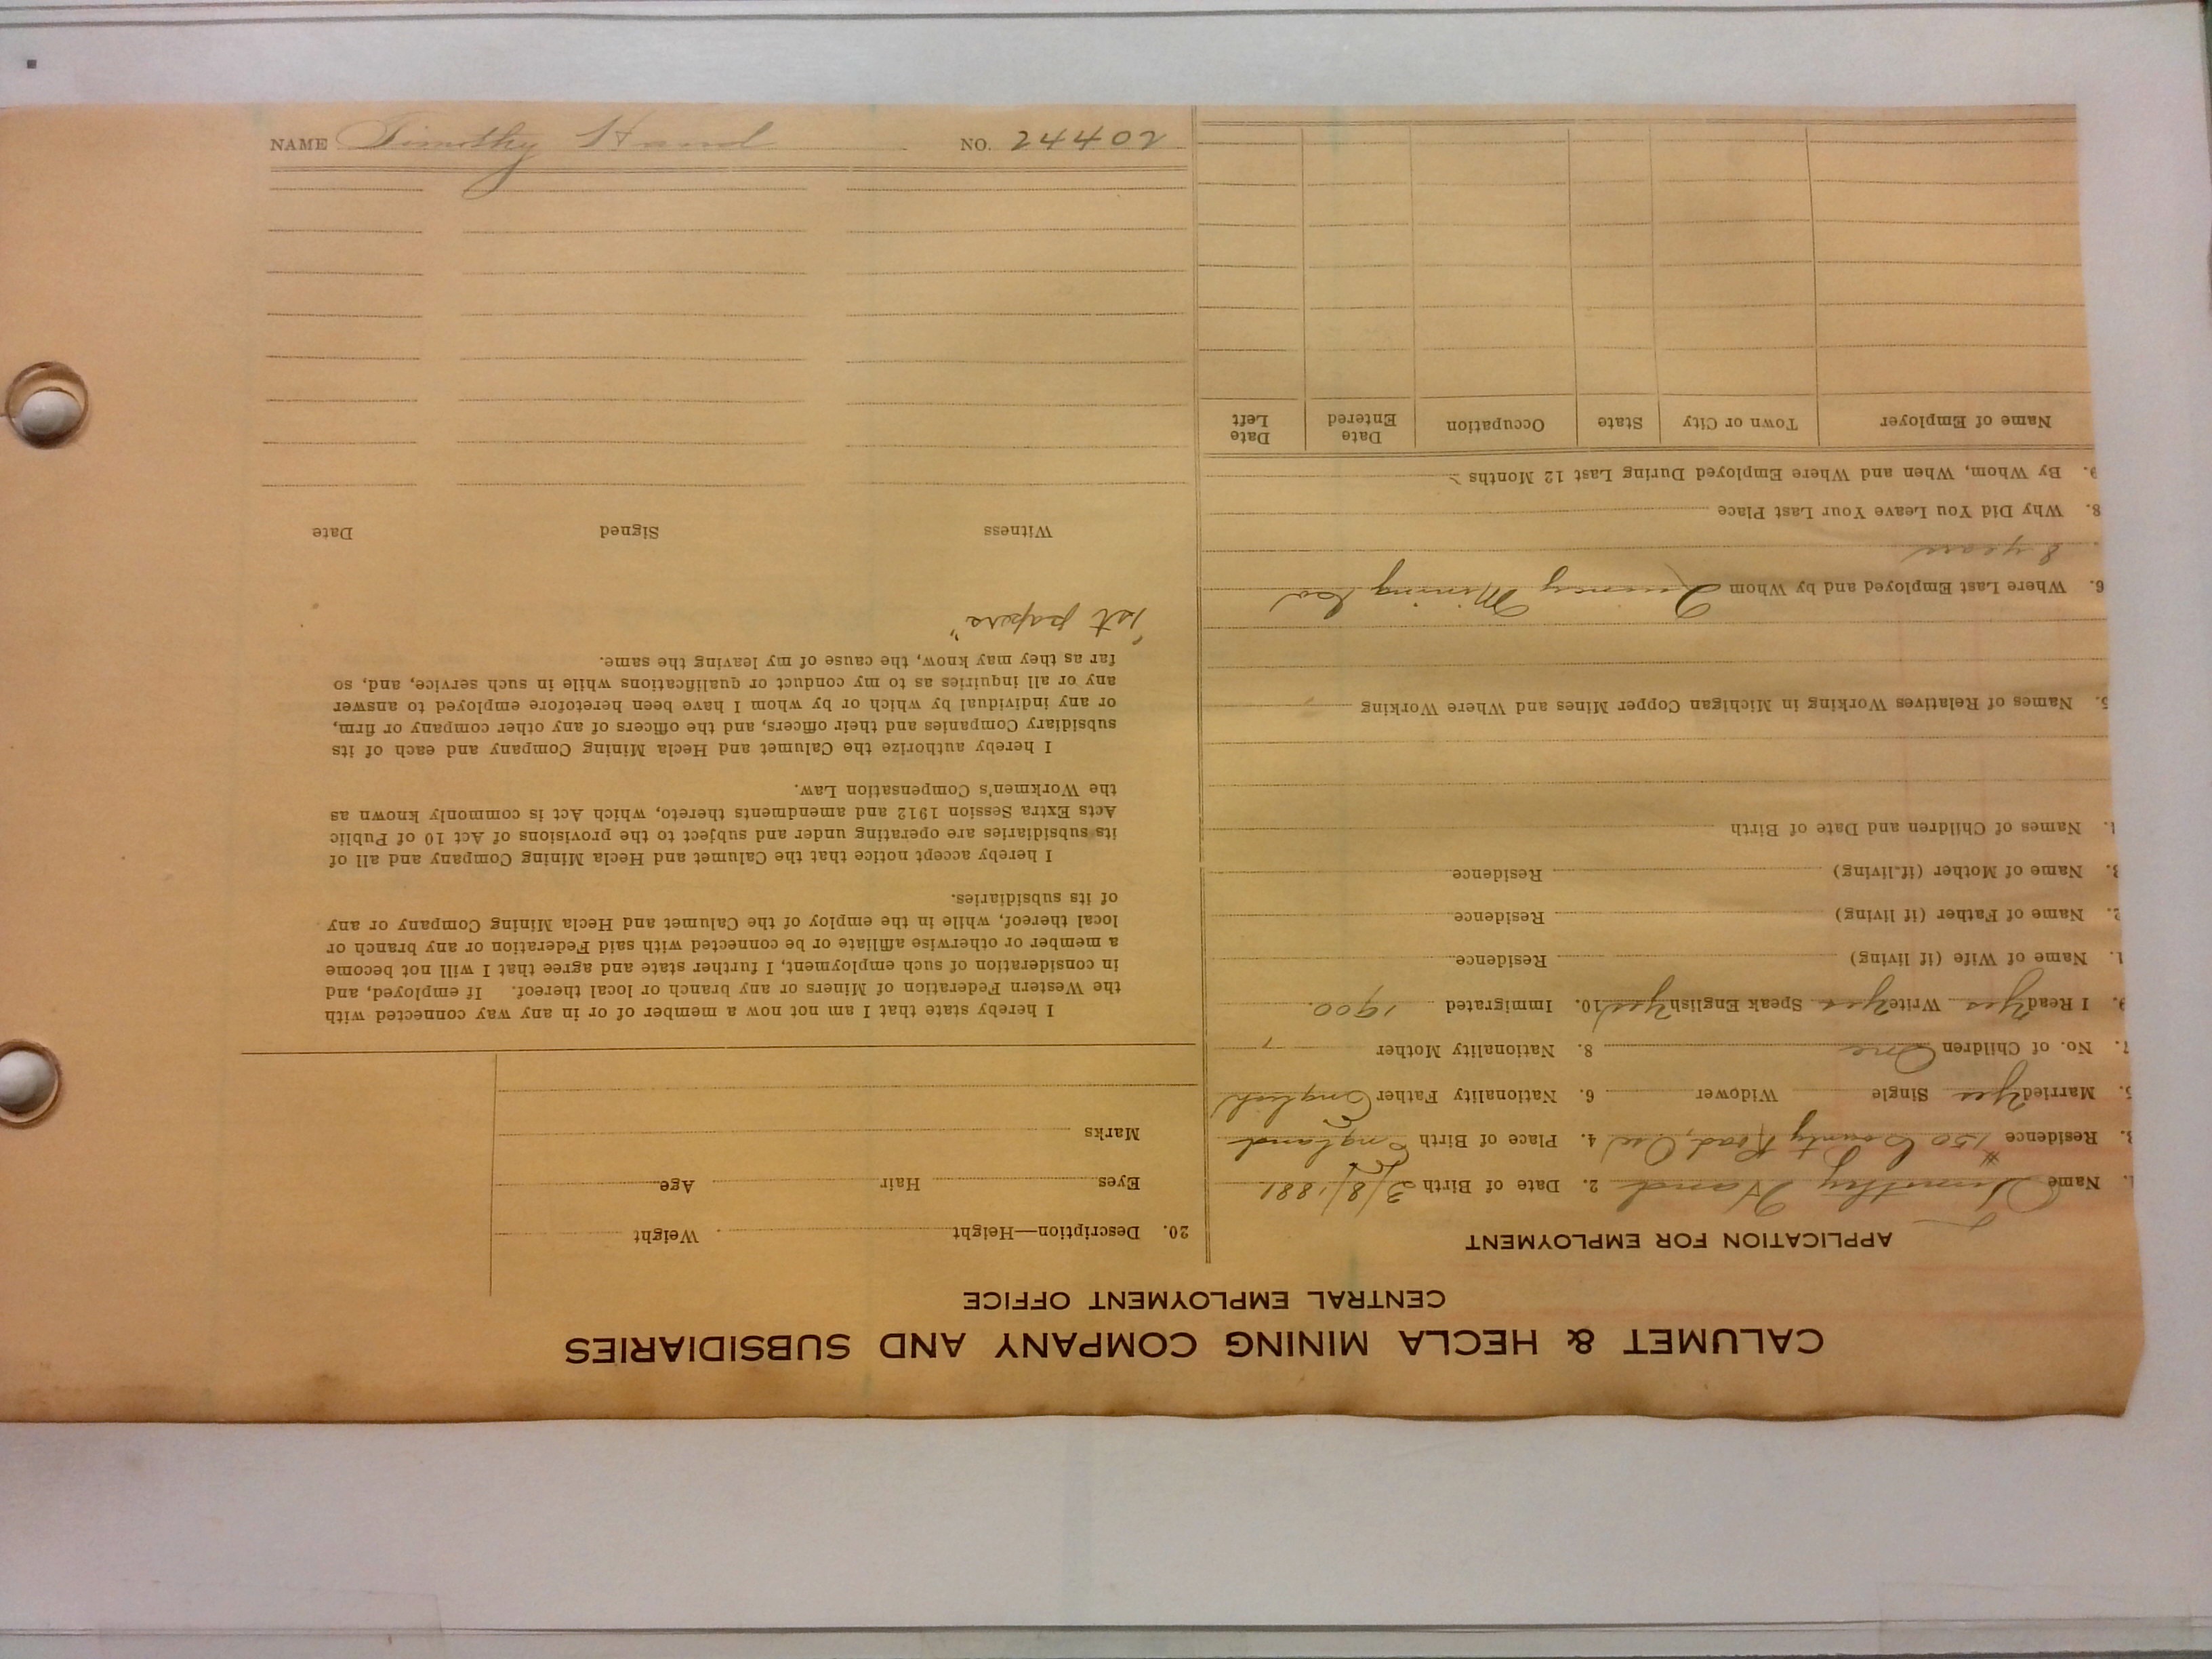 CALUMET & HECLA MINING COMPANY AND SUBSIDIARIES
CENTRAL EMPLOYMENT OFFICE
APPLICATION FOR EMPLOYMENT
1. Name Timothy Hand 2. Date of Birth 3/8/1881
3. Residence #150 County Road, 4. Place of Birth England
5. Married Yes Single Widower 6. Nationality Father English
7. No. of Children One 8. Nationality Mother "
9. I Read Yes Write Yes Speak English Yes 10. Immigrated 1900.
1. Name of Wife (if living) Residence
2. Name of Father (if living) Residence
3. Name of Mother (if living) Residence
Names of Children and Date of Birth
5. Names of Relatives Working in Michigan Copper Mines and Where Working
6. Where Last Employed and by Whom Quincy Mining Co
8 years
8. Why Did You Leave Your Last Place
9. By Whom, When and Where Employed During Last 12 Months
Name of Employer Town or City State Occupation Date Entered Date Left
20. Description—Height Weight
Eyes Hair Age
Marks
I hereby state that I am not now a member of or in any way connected with
the Western Federation of Miners or any branch or local thereof. If employed, and
in consideration of such employment, I further state and agree that I will not become
a member or otherwise affiliate or be connected with said Federation or any branch or
local thereof, while in the employ of the Calumet and Hecla Mining Company or any
of its subsidiaries.
I hereby accept notice that the Calumet and Hecla Mining Company and all of
its subsidiaries are operating under and subject to the provisions of Act 10 of Public
Acts Extra Session 1912 and amendments thereto, which Act is commonly known as
the Workmen's Compensation Law.
I hereby authorize the Calumet and Hecla Mining Company and each of its
subsidiary Companies and their officers, and the officers of any other company or firm,
or any individual by which or by whom I have been heretofore employed to answer
any or all inquiries as to my conduct or qualifications while in such service, and, so
far as they may know, the cause of my leaving the same.
"1st papers"
Witness Signed Date
NAME Timothy Hand NO. 24402